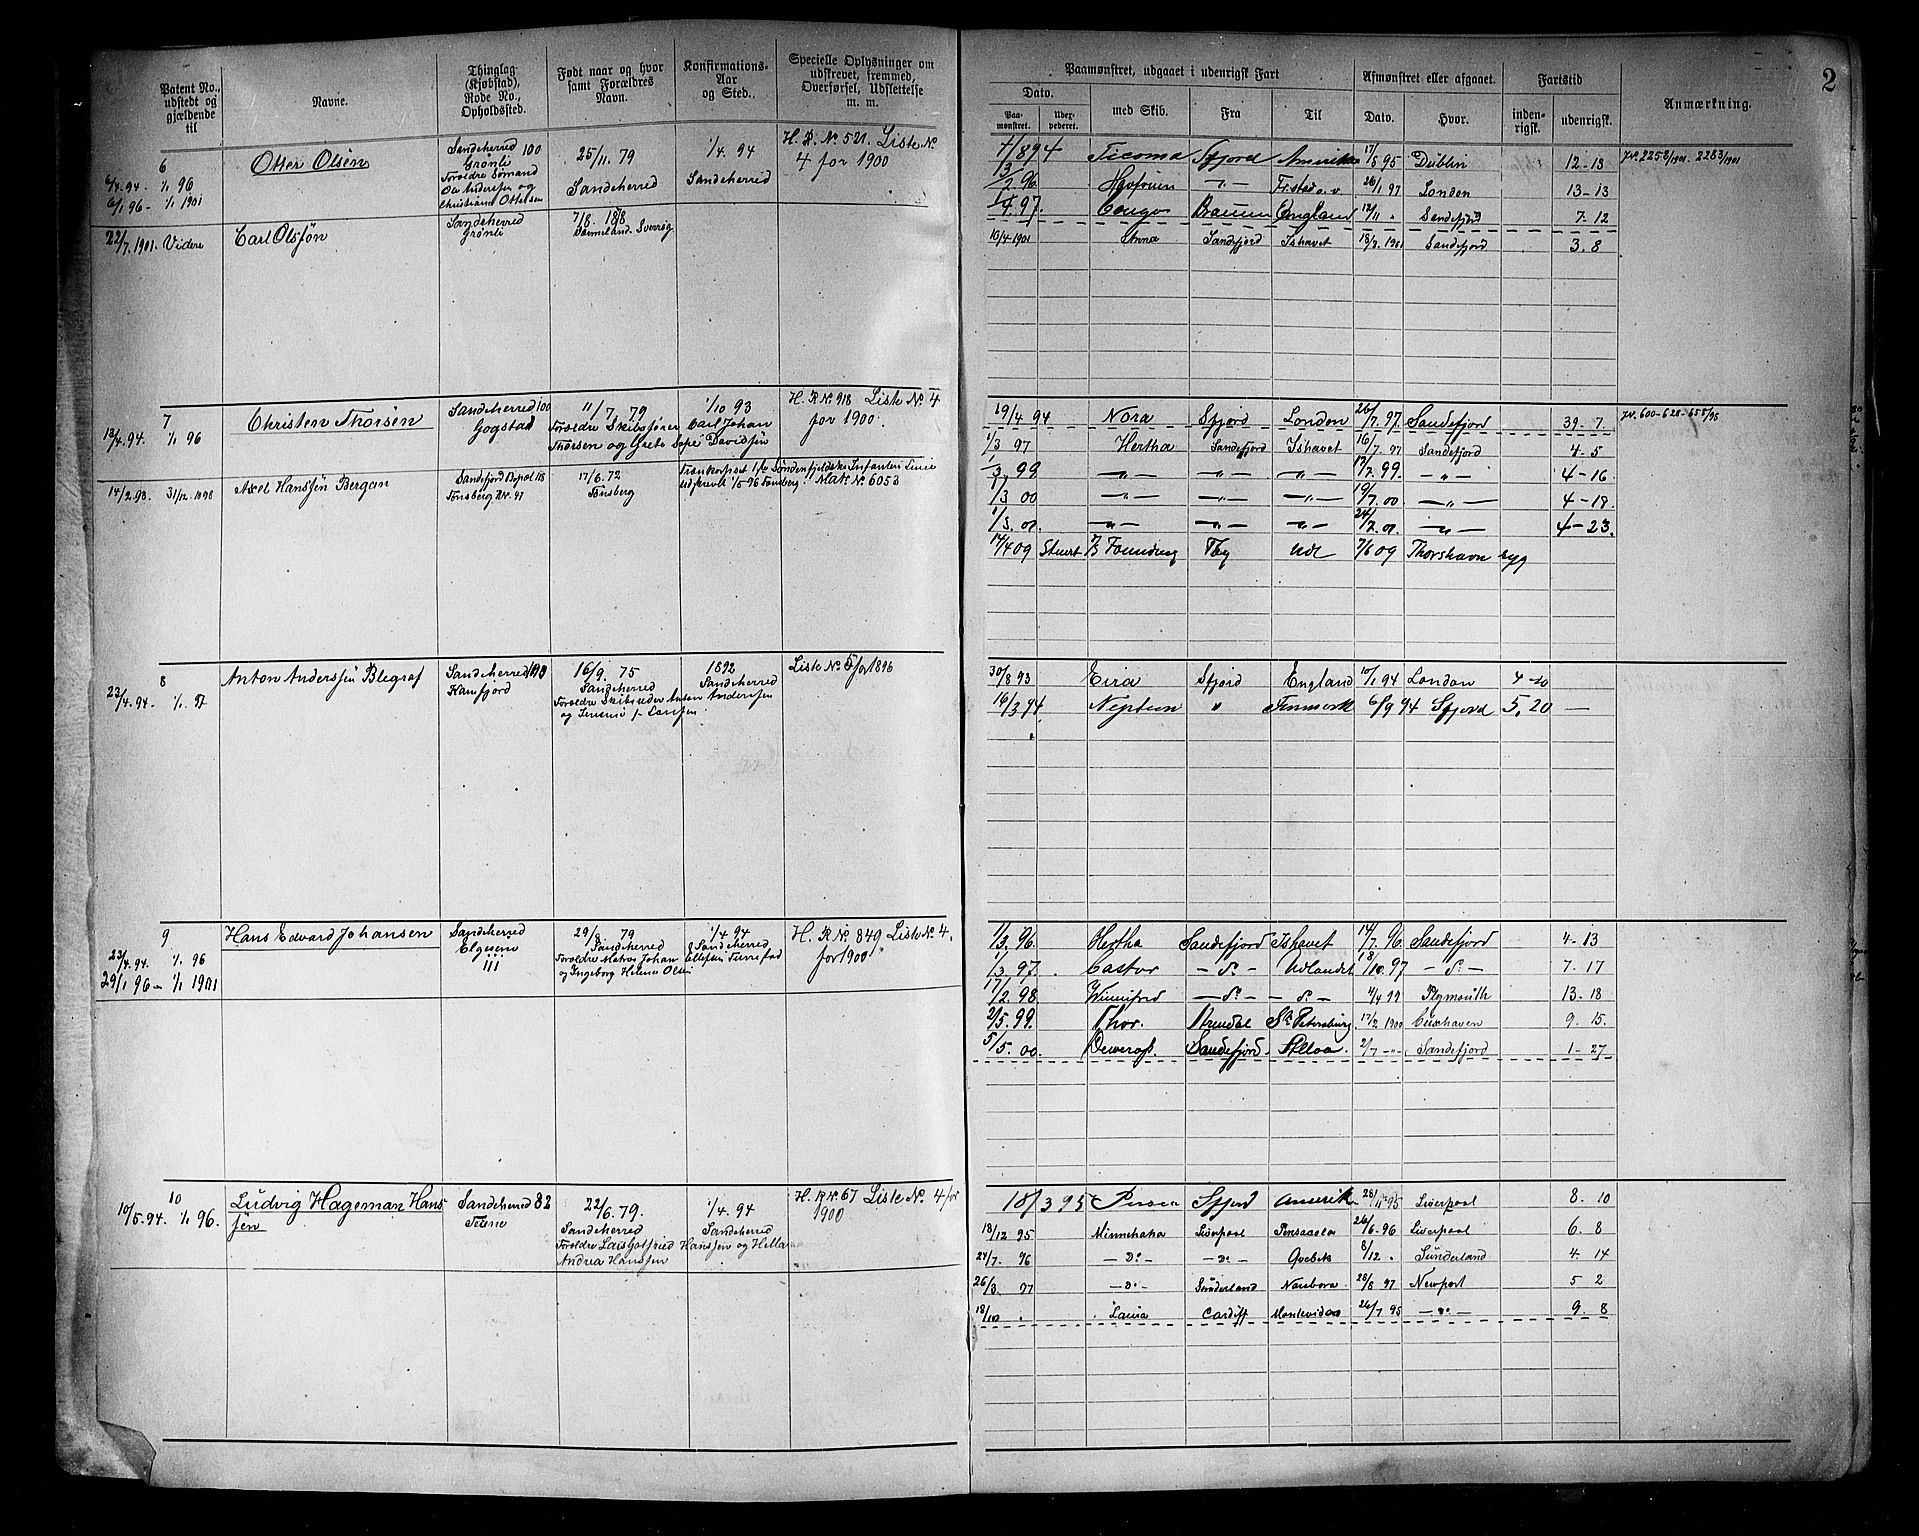 2
Patent No., udstedt og gjældende til
Navne.
Thinglag (Kjøbstad), Rode No., Opholdssted.
Født naar og hvor samt Forældres Navn.
Konfirmations-Aar og Sted.
Specielle Oplysninger om udskrevet, fremmed, Overførsel, Udslettelse m. m.
Paamønstret, udgaaet i udenrigsk Fart
Dato.
Paamønstret.
med Skib.
Fra
Til
Afmønstret eller afgaaet.
Dato.
Hvor.
Fartstid
indenrigsk.
udenrigsk.
Anmærkning.
6
6/4.94. 1/1 96
6/1 96 - 1/1 1901
Otter Olsen
Sandeherred 100
Grønli
Forældre Sømand
Ole Andersen og
Christiane Ottersen
25/11. 79
Sandeherred
1/4. 94
Sandeherred
H. R. No. 521. Liste No.
4 for 1900
Ticoma Sfjord Amerika 17/5 95 Dublin 12-13
1/2 96 " 26/1 97 London 13-13
1/4.97. Congo England 12/11 " Sandefjord 7. 12
22/7.1901. Videre
Carl Olsson
Sandeherred
Grønli
7/8. 1878
10/4-1901 Anna Sandefjord Ishavet 18/7. 1901 Sandefjord 3. 8
7
13/4.94. 1/1 96
Christen Thorsen
Sandeherred 100
Gogstad
11/7. 79
Forældre Skibsfører Carl Johan
Thorsen og Grete Sofie Davidsen
1/10 93
H. R No. 918 Liste No. 4
for 1900.
19/4 94 Nora Sfjord London 26/7. 97. Sandefjord 39. 7.
No. 600-628-658/95
14/2.98. 31/12. 1898
Axel Hanssen Bergan
Tønsberg Nr. 97
17/6. 72
Tønsberg
1/3 97 Hertha Sandefjord Ishavet 16/7. 97 Sandefjord 4-5
1/3.99 " " " 17/7.99. " 4-16.
1/3 00 " " " 19/7.00. " 4-18
" " " " 4-23.
17/4 09 7/6 09 Thorshavn syg
8
23/4.94. 1/1. 97
Anton Anderssen Blegraf
Sandeherred
Kamfjord
16/9. 75
Sandeherred
1892
Sandeherred
Liste No. 5 for 1896
30/8 93 Eira Sfjord England 10/1 94 London 4-20
16/3 94 Neptun " Finmark 6/9 94 Sfjord 5. 20
9
23/4.94. 1/1. 96
29/1 96 - 1/1 1901
Hans Edvard Johansen
Sandeherred
Elgesem
111
29/8. 79
Sandeherred
Forældre Matros Johan Ellefsen Furrestad
og Ingeborg Helene Olsen
1/4 94
Sandeherred
H. R No. 849. Liste No. 4.
for 1900.
1/3. 96. Hertha Sandefjord Ishavet 14/7. 96. Sandefjord 4-13
1/3 97. Castor - do. - Udlandet 18/10. 97 - do. - 7. 17
17/2. 98 Winnifred - do. - do. - 11/4 99 Plymouth 13. 18
2/5.99. Thor. Arendal St. Petersburg 17/2 1900 Cuxhaven 9. 15.
5/5. 00. Sandefjord Alloa. 2/7 " Sandefjord 1-27
10
10/5.94. 1/1 96.
Ludvig Hageman Hans
sen
Sandeherred 82
22/6.79.
Sandeherred
Forældre Lars Gotfried Hanssen og Hella
Andrea Hanssen
1/4. 94
Sandeherred
H. R No. 67 Liste No. 4 for
1900
18/3 95 Sfjord Amerika 28/11 95 Liverpool 8. 10
13/12 95 Minnehaha Liverpool Pensacola 26/6. 96 Liverpool 6. 8
24/7. 96 - do. - - do. - Qvebek 8/12 . Sunderland 4. 14
26/3. 97 - do. - Sunderland 28/8 97 Newport 5 2
18/10 . Laura Cardiff Montevideo 26/7 95 - do. - 9. 8